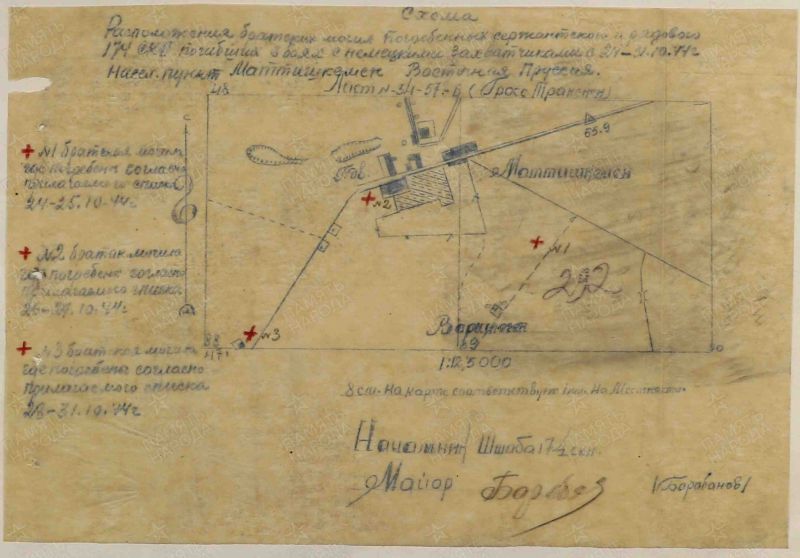 Схема
Расположения братских могил погребенных сержантского и рядового
174 погибших в боях с немецкими захватчиками с 24-31.10.44г
Насел. пункт Маттишкемен Восточная Пруссия.
Лист N-34-57-Б (Гросс Тракенен)
48
С
65.9
№1 братская могила
где погребены согласно
прилагаемого списка
24-25.10.44г
№2
Маттишкемен
№2 братск могила
где погребены согласно
прилагаемого списка
26-27.10.44г
№1
292
Ю
№3
88
47
89
№3 братская могила
где погребены согласно
прилагаемого списка
28-31.10.44г
1:12,5000
8 см. На карте соответствует 1 км. На местности
Начальник Штаба 174
Майор
/Барабанов/
ПАМЯТЬ НАРОДА